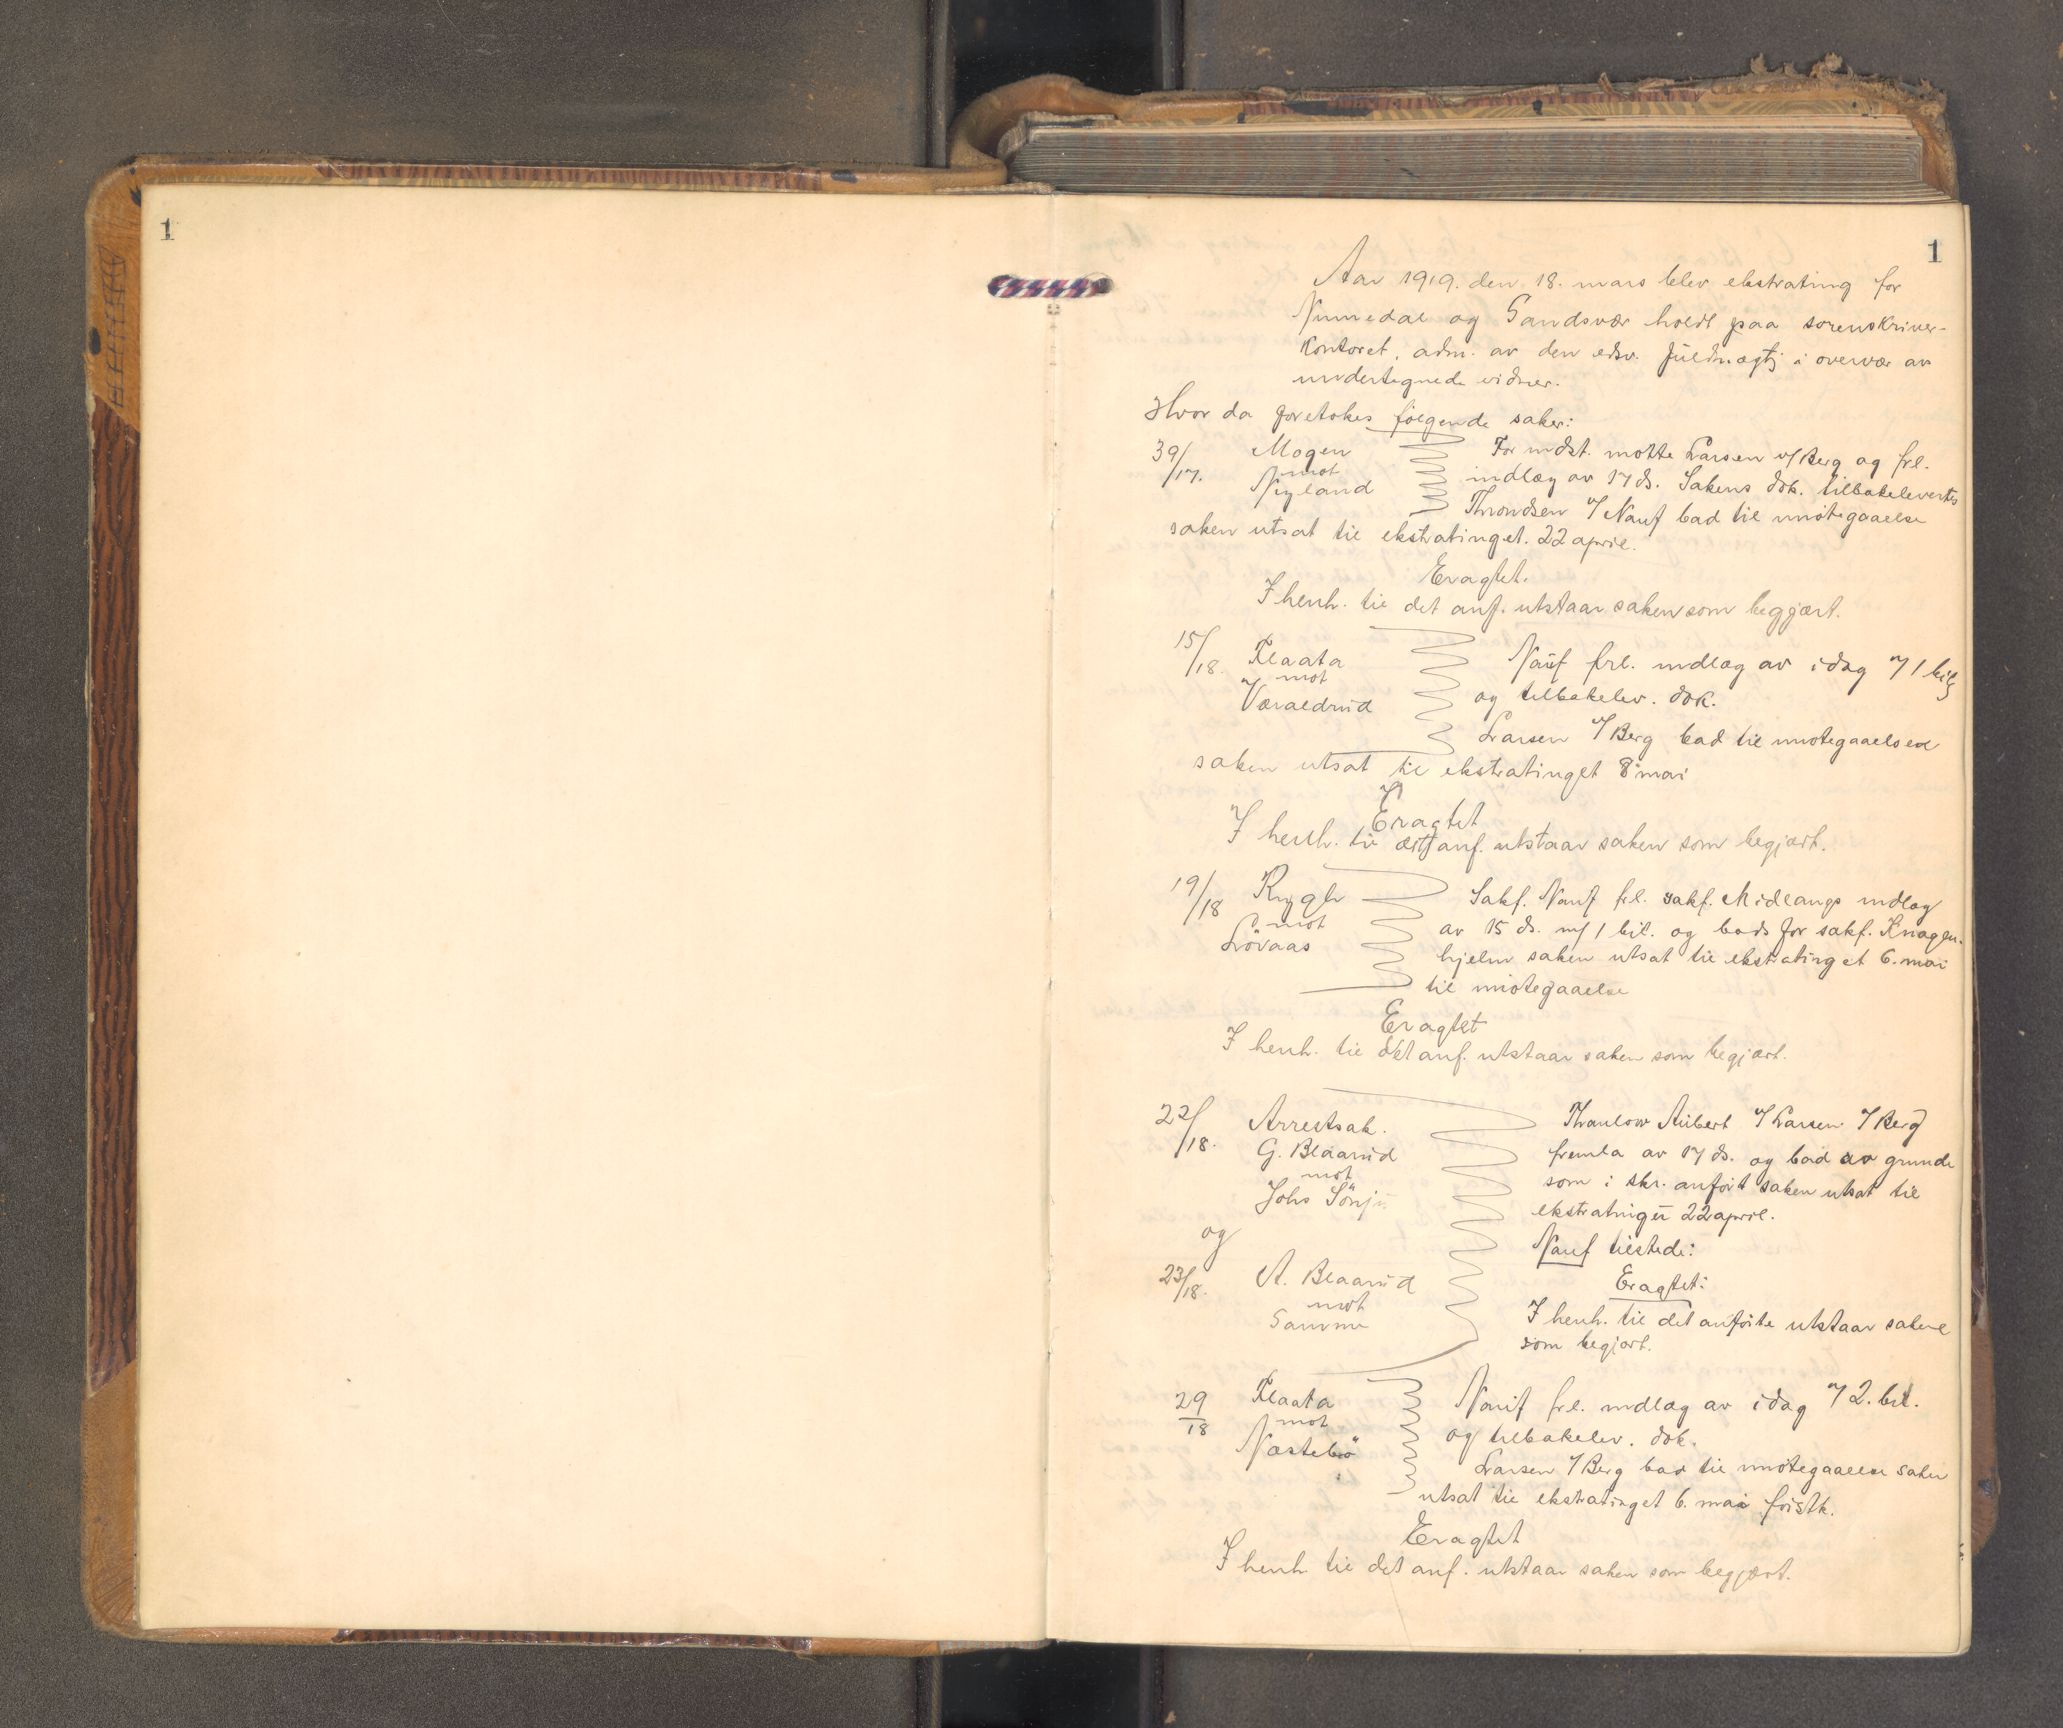 1
1
Aar 1919. den 18. mars blev ekstrating for
Numedal og Sandsvær holdt paa sorenskriver-
kontoret, adm. av den edsv. fuldmægtig i overvær av
undertegnede vidner.
Hvor da foretokes følgende saker:
39/17. Mogen
mot
Nyland
For indst. møtte Larsen f/ Berg og frl.
indlæg av 17 ds. Sakens dok. tilbakelevertes
Throndsen f/ Nauf bad til imøtegaaelse
saken utsat til ekstratinget. 22 april.
Eragtet.
I henh. til det anf. utstaar saken som begjært.
15/18. Flaata
mot
Væraldrud
Nauf frl. indlæg av idag m/ 1 bilg
og tilbakelev. dok.
Larsen f/ Berg bad til imøtegaaelse
saken utsat til ekstratinget 8 mai
Eragtet
I henh. til det anf. utstaar saken som begjært.
19/18 Rygh
mot
Lövaas
Sakf. Nauf frl. sakf. Midlangs indlæg
av 15 ds. m/ 1 bil. og bads for sakf. Knagen-
hjelm saken utsat til ekstratinget 6. mai
til imøtegaaelse
Eragtet
I henh. til det anf. utstaar saken som begjært.
22/18. Arrestsak.
G. Blaarud
mot
Johs Sönju
og
23/18. A. Blaarud
mot
Samme
Thaulow Aubert f/ Larsen f/ Berg
fremla av 17 ds. og bad av grunde
som i skr. anfört saken utsat til
ekstratinget 22 april.
Nauf tilstede:
Eragtet:
I henh. til det anförte utstaar sakene
som begjært.
29/18 Flaata
mot
Næstebö
Nauf frl. indlæg av idag m/ 2. bil.
og tilbakelev. dok.
Larsen f/ Berg bad til imötegaaelse saken
utsat til ekstratinget 6. mai förstk.
Eragtet
I henh til det anf. utstaar saken som begjært.